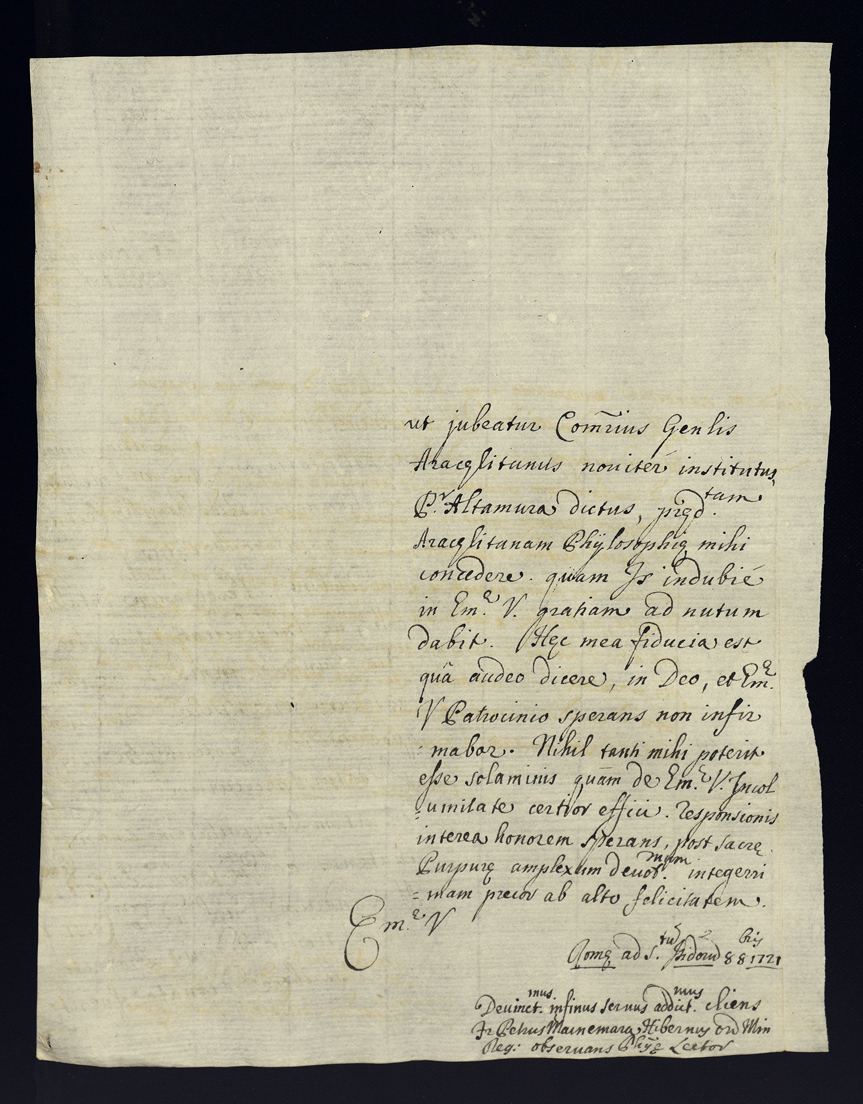 ut jubeatur Com̃rius Genlis
Aracęlitanus novitér institutus,
Pʳ Altamura dictus, pręd.ᵗᵃᵐ
Aracęlitanam Phÿlosophię mihi
concedere. quam Is indubié
in Em.ᵉ V. gratiam ad nutum
dabit. Hęc mea fiducia est
quâ audeo dicere, in Deo, et Em.ᵉ
V Patrocinio sperans non infir
mabor. Nihil tanti mihi poterit
esse solaminis quam de Em.ᵉ V. Incol
=umitate certior effici. responsionis
interea honorem sperans, post sacrę
Purpurę amplexum devot.ᵐᵘᵐ integerri
=mam precor ab alto felicitatem.
Em.ᵉ V
Romę ad S.ᵗᵘ̃ Isidorũ 8 8bris 1721
Devinct.ᵐᵘˢ infimus servus addict.ᵐᵘˢ cliens
Fr Petrus Macnemara, Hibernus ord Min
Reg: observans Phÿę Lector